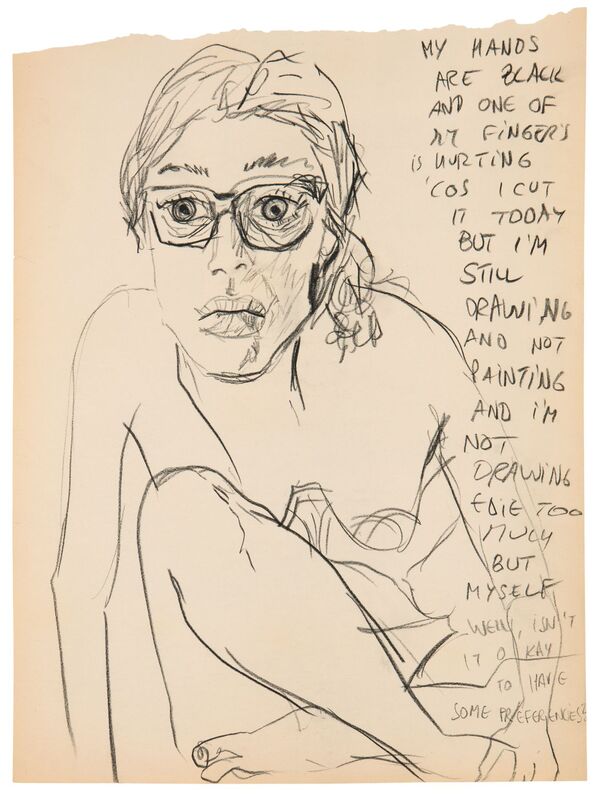 MY HANDS
ARE BLACK
AND ONE OF
MY FINGERS
IS HURTING
'COS I CUT
IT TODAY
BUT I'M
STILL
DRAWING
AND NOT
PAINTING
AND I'M
NOT
DRAWING
EDIE TOO
MUCH
BUT
MYSELF
WELL, ISN'T
IT O KAY
TO HAVE
SOME PREFERENCES?